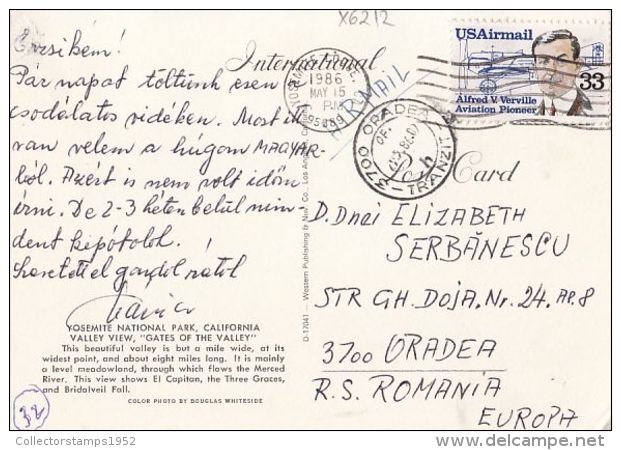 X6212
International
USAirmail
33
Alfred V. Verville
Aviation Pioneer
1986
MAY 15
PM
95389
AIRMAIL
3700 ORADEA
TRANZIT
Card
Érzsikém!
Pár napot töltünk ezen
csodálatos vidéken. Most itt
van velem a húgom MAGYAR-
ból. Azért is nem volt időm
írni. De 2-3 héten belül min-
dent bepótolok.
Szeretettel gondol rátok
D. Dnei ELIZABETH
SERBĂNESCU
STR GH. DOJA, Nr. 24. AP. 8
3700 ORADEA
R.S. ROMANIA
EUROPA
YOSEMITE NATIONAL PARK, CALIFORNIA
VALLEY VIEW, "GATES OF THE VALLEY"
This beautiful valley is but a mile wide, at its
widest point, and about eight miles long. It is mainly
a level meadowland, through which flows the Merced
River. This view shows El Capitan, the Three Graces,
and Bridalveil Fall.
COLOR PHOTO BY DOUGLAS WHITESIDE
D-17041 - Western Publishing & Nov. Co., Los Angeles, Calif.
32
Collectorstamps1952